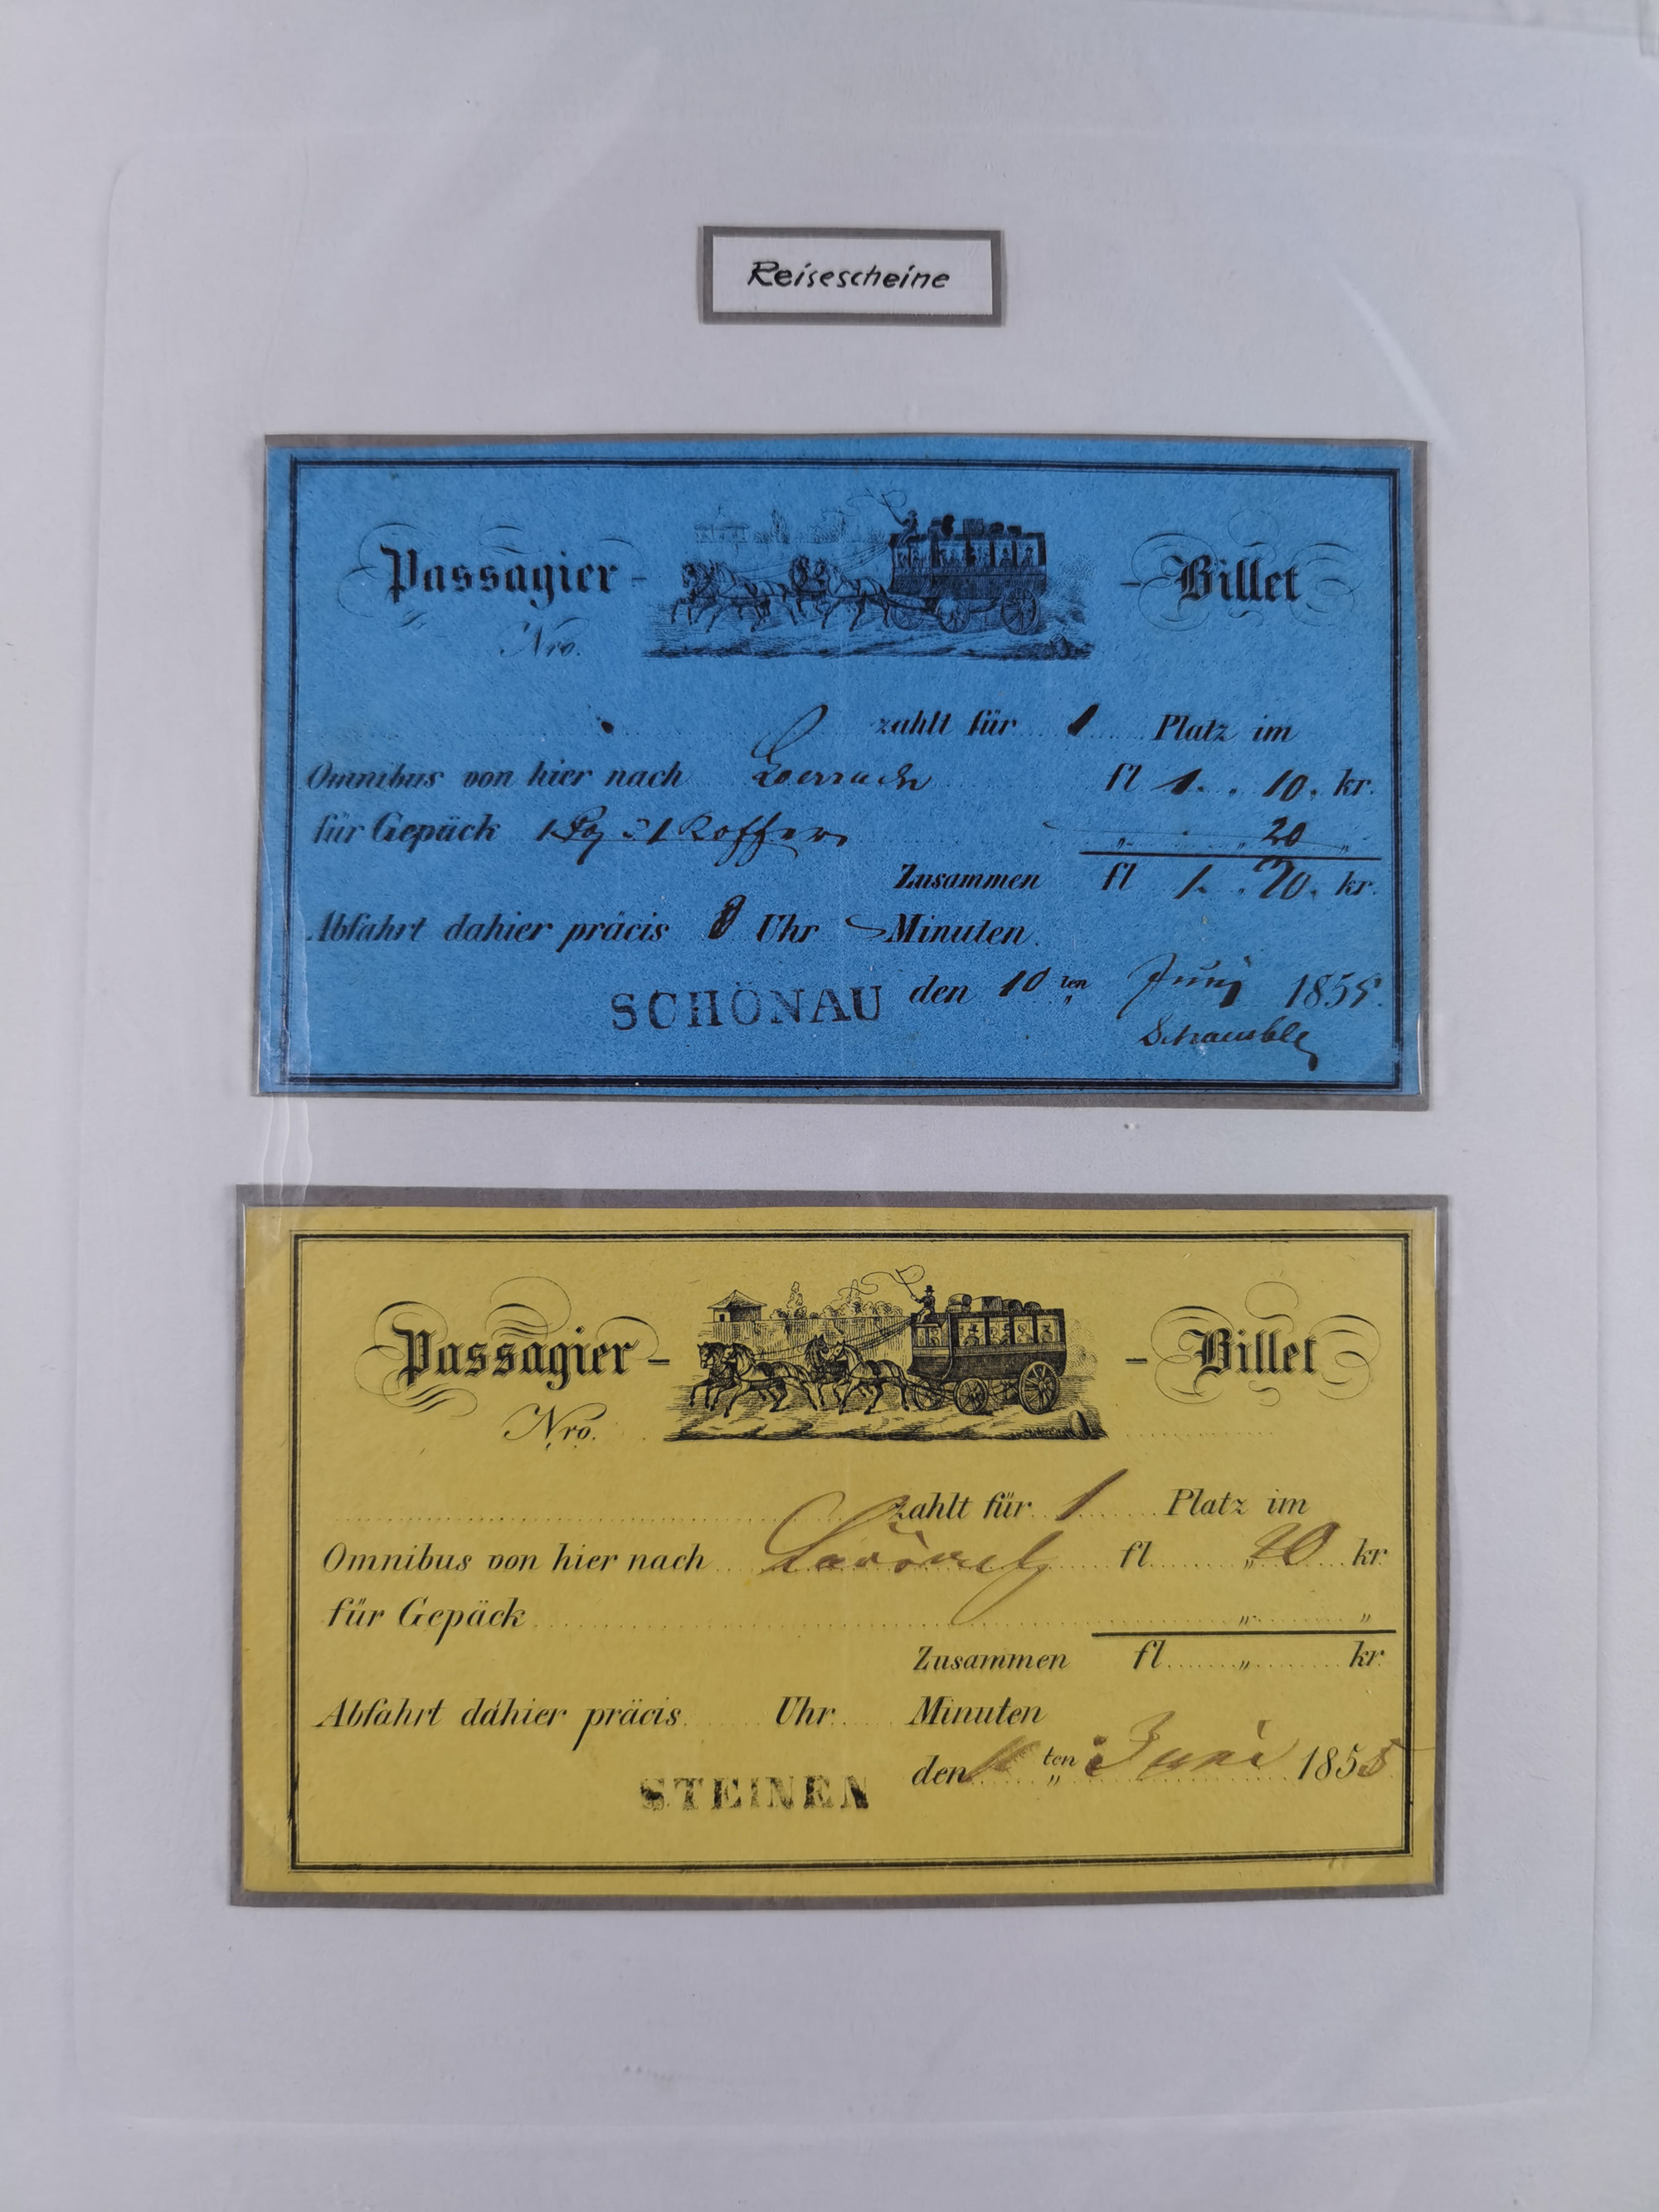 Reisescheine
Passagier- -Billet
Nro.
zahlt für 1 Platz im
Omnibus von hier nach Loerrach fl 1. " 10. kr.
für Gepäck 1 Koffer " 20 "
Zusammen fl 1. " kr.
Abfahrt dahier präcis Uhr Minuten.
SCHÖNAU den 10 ten Juni 1855.
Passagier- -Billet
Nro.
zahlt für 1 Platz im
Omnibus von hier nach fl " 20 kr.
für Gepäck " "
Zusammen fl " kr.
Abfahrt dahier präcis Uhr Minuten
den ten Juni 1855
STEINEN